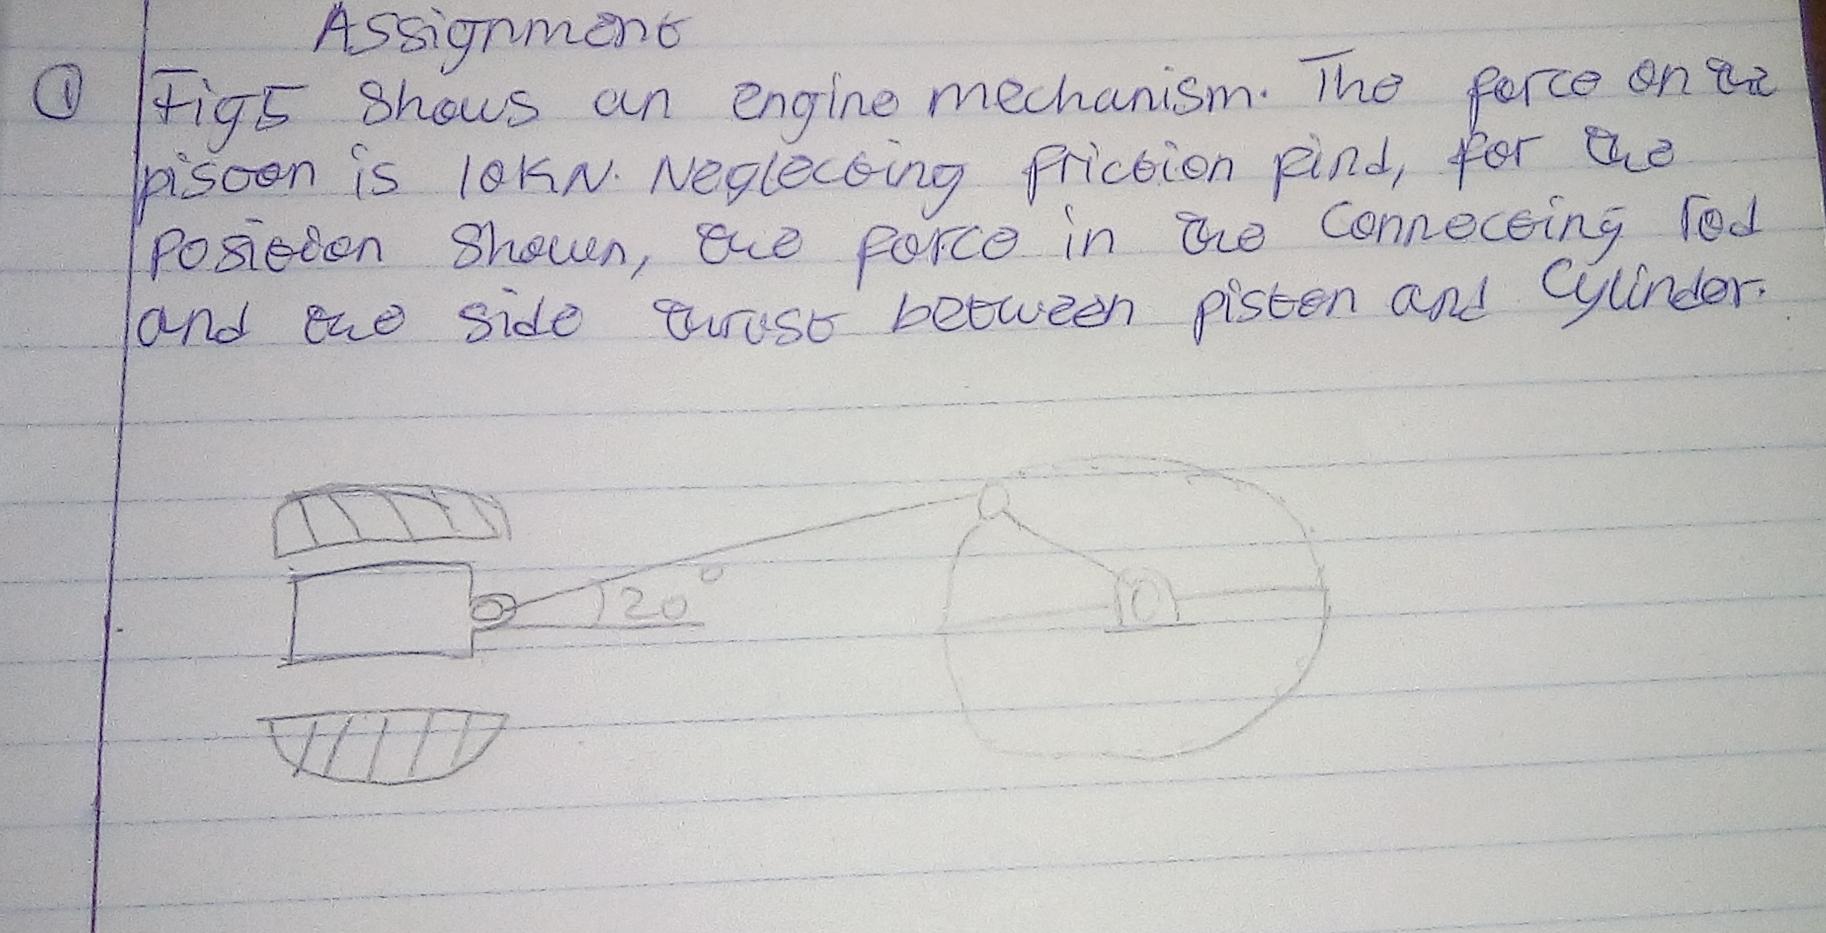 Assignment
① Fig5 Shows an engine mechanism. The force on the
pistoon is 10KN. Neglecting friction find, for the
Position Shown, the force in the Connecting rod
and the side thrust between piston and Cylinder.
20°